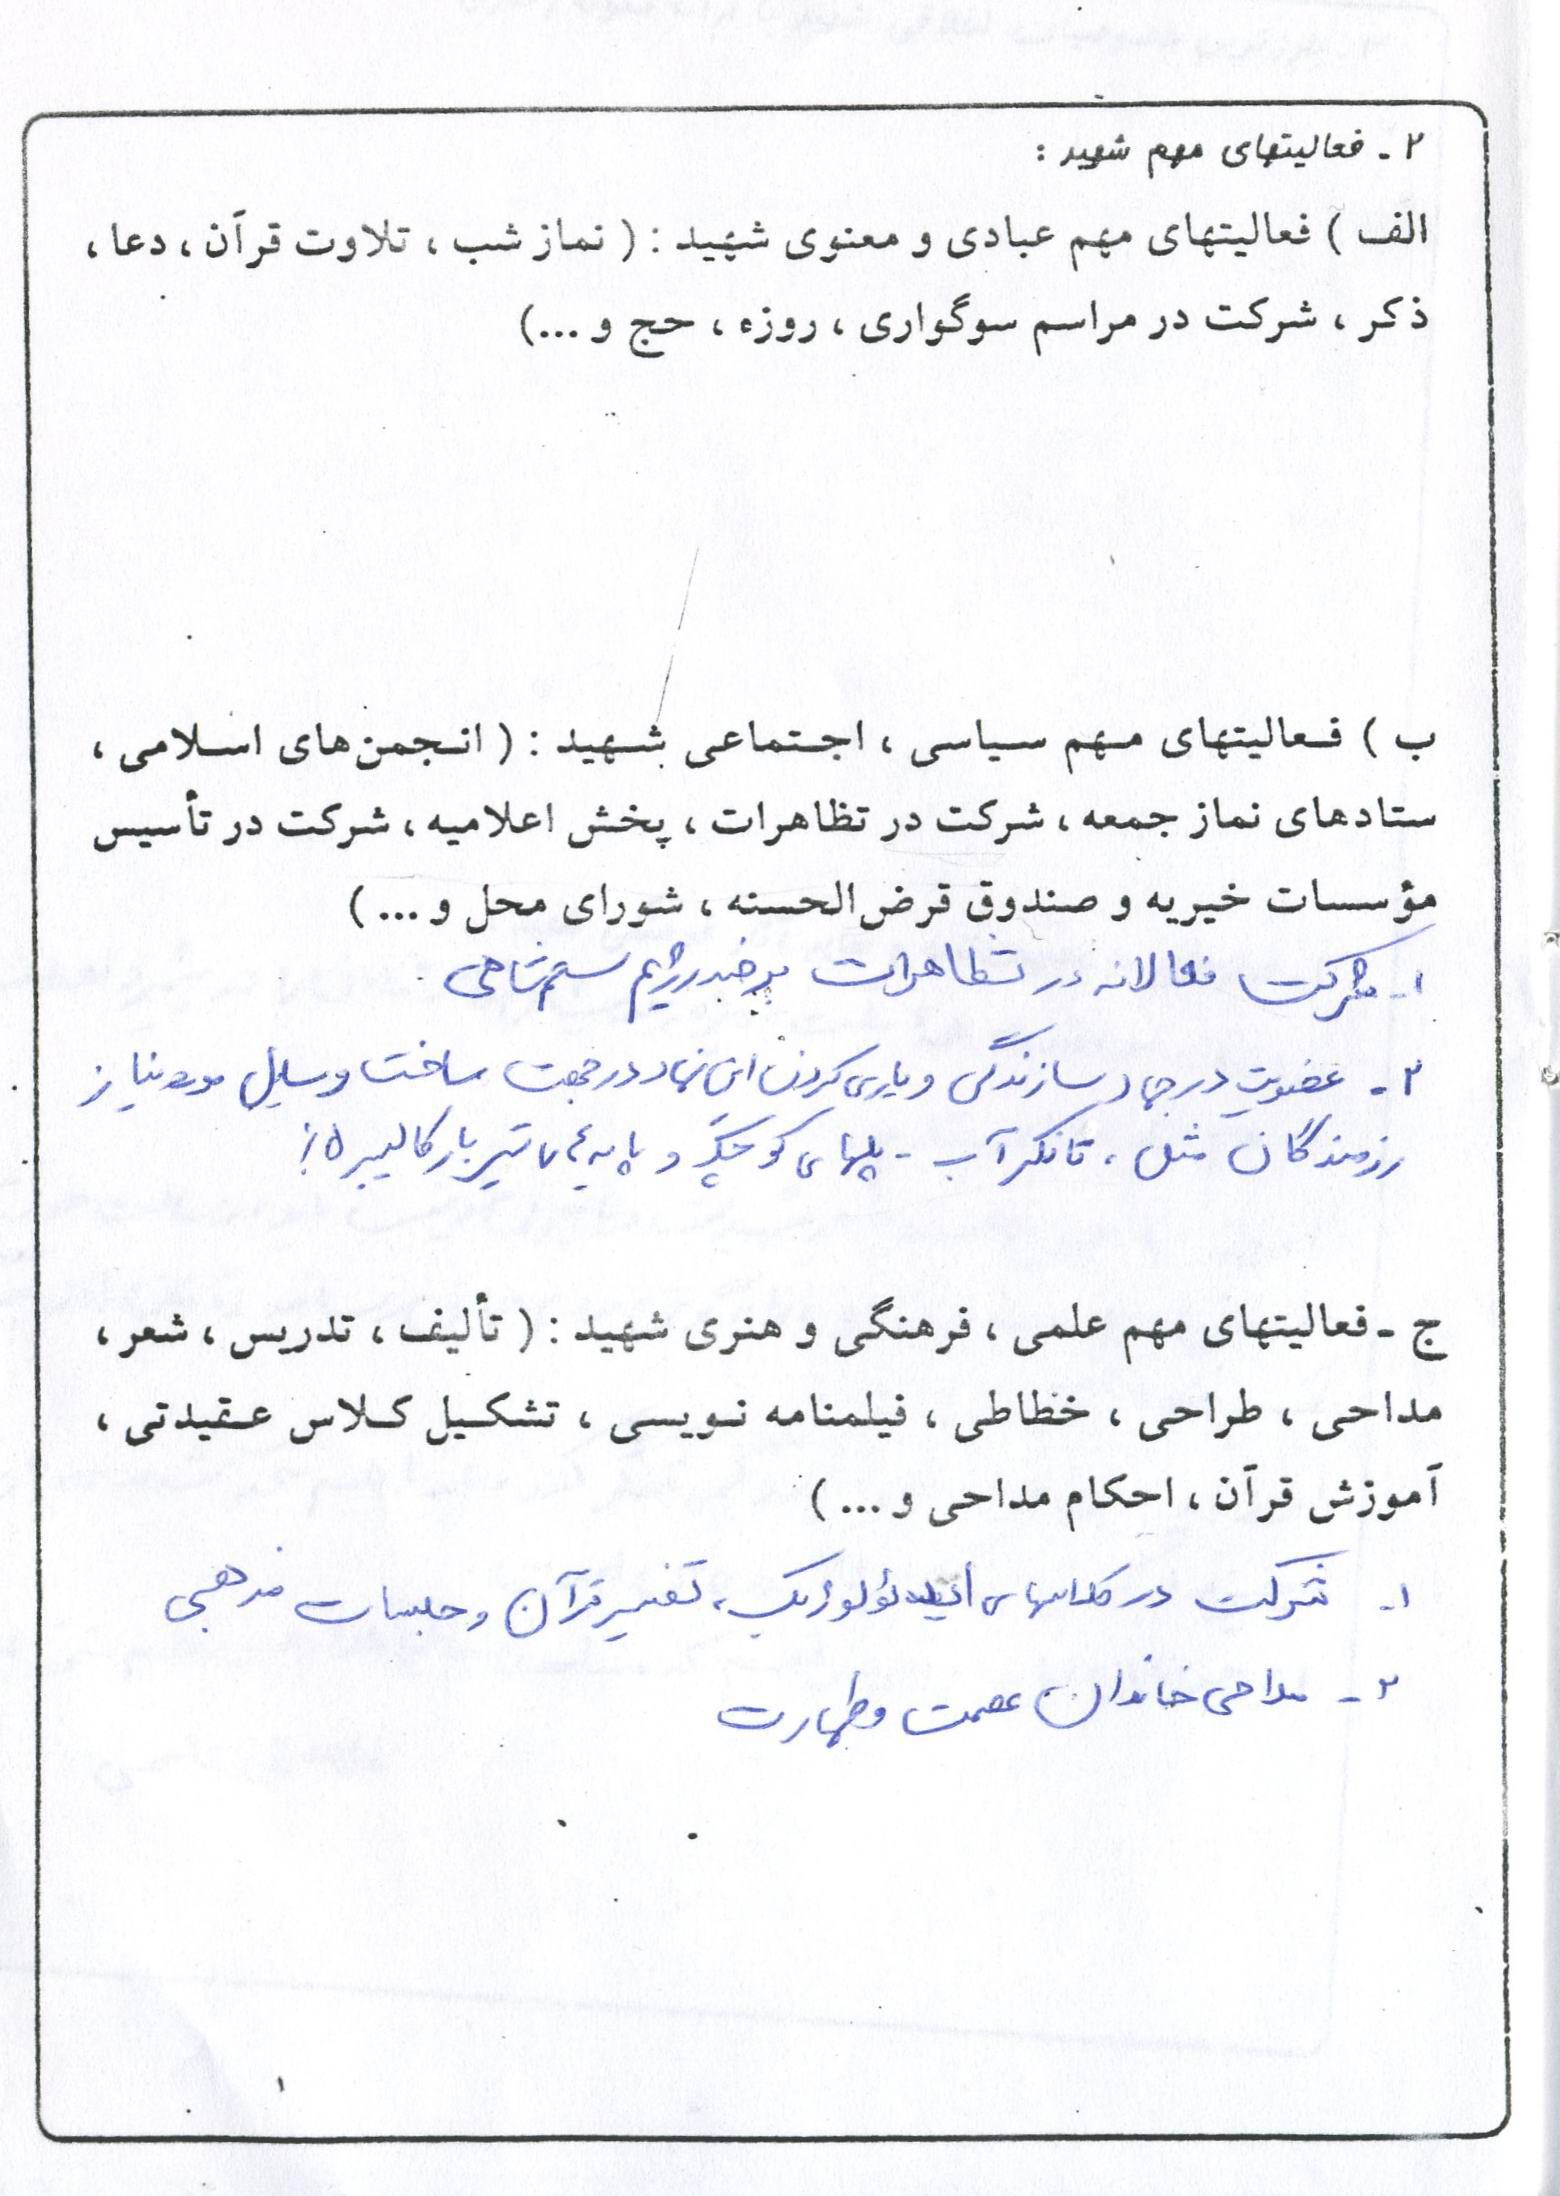 ۲ ـ فعالیتهای مهم شهید :
الف ) فعالیتهای مهم عبادی و معنوی شهید : ( نماز شب ، تلاوت قرآن ، دعا ،
ذکر ، شرکت در مراسم سوگواری ، روزه ، حج و ...)
ب ) فعالیتهای مهم سیاسی ، اجتماعی شهید : ( انجمن‌های اسلامی ،
ستادهای نماز جمعه ، شرکت در تظاهرات ، پخش اعلامیه ، شرکت در تأسیس
مؤسسات خیریه و صندوق قرض‌الحسنه ، شورای محل و ... )
۱ـ شرکت فعالانه در تظاهرات بر ضد رژیم ستم شاهی .
۲ ـ عضویت در جهاد سازندگی و یاری کردن این نهاد در جهت ساخت وسایل مورد نیاز
رزمندگان مثل ، تانکر آب - پلهای کوچک و پایه های تیربار کالیبر ۵۰
ج ـ فعالیتهای مهم علمی ، فرهنگی و هنری شهید : ( تألیف ، تدریس ، شعر ،
مداحی ، طراحی ، خطاطی ، فیلمنامه نویسی ، تشکیل کلاس عقیدتی ،
آموزش قرآن ، احکام مداحی و ... )
۱ـ شرکت در کلاسهای ایدئولوژیک ، تفسیر قرآن و جلسات مذهبی
۲ ـ مداحی خاندان عصمت و طهارت